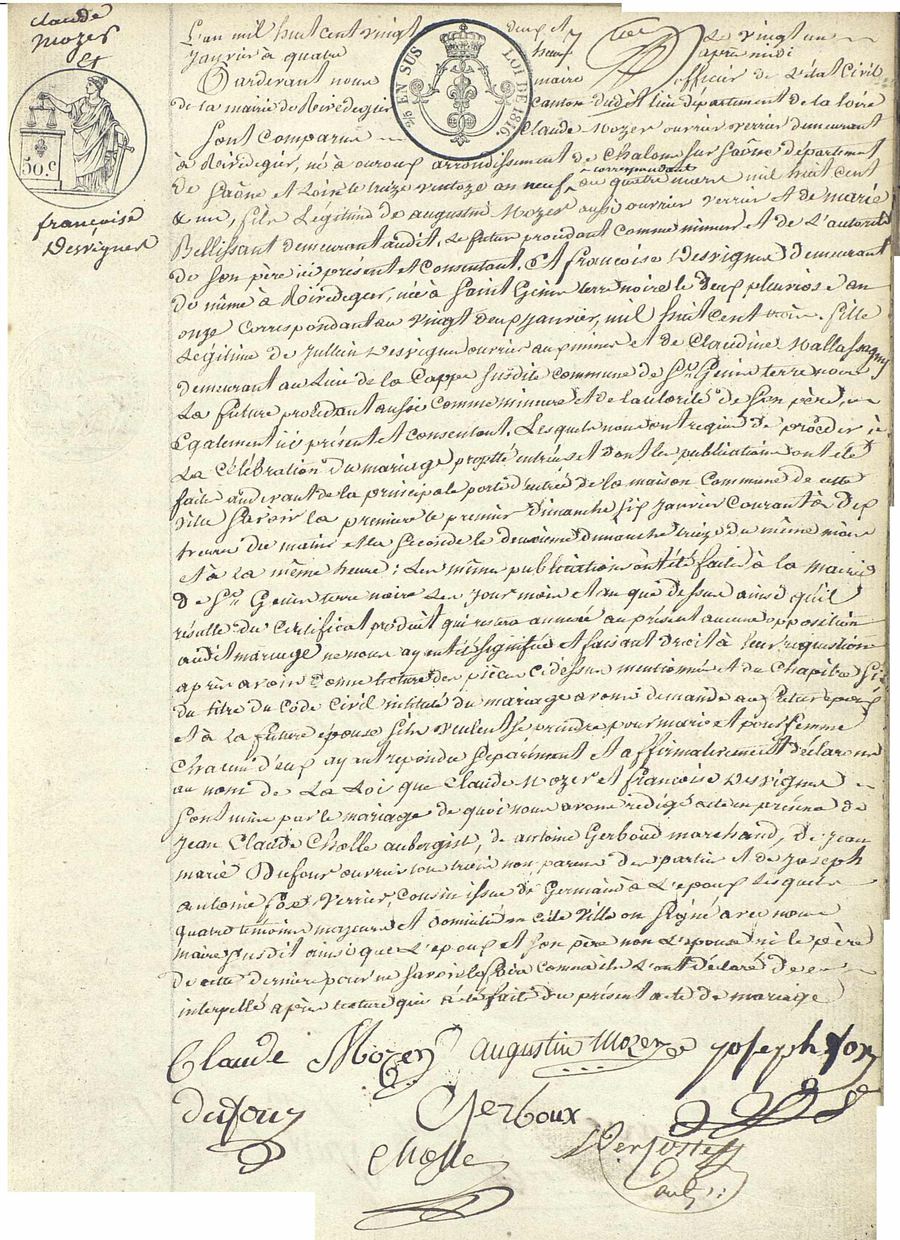 Claude
Mozer
Et
50.c
françoise
Desvignes
EN SUS
LOI DE 1816.
L'an mil huit cent vingt deux et Le vingt un
Janvier à quatre heures apres midi
Pardevant nous maire officier de L'état Civil
de la mairie de Rivedegier canton dudit lieu département de la loire
Sont Comparus Claude Mozer ouvrier verrier demeurant
à Rivedegier, né à arrondissement de Chalons sur Saône département
de Saône et Loire le treize ventoze an neuf correspondant au quatre mars mil huit cent
& un, fils Légitime de augustin Mozer aussi ouvrier verrier et de marie
Bellissant demeurant audit, Le futur procédant comme mineur et de L'autorité
de Son père ici présent et Consentant, Et françoise Desvignes demeurant
de même à Rivedegier, née à Saint Genis terre noire le deux pluviose an
onze correspondant au vingt deux janvier, mil huit cent trois. fille
Légitime de Jullien Desvignes ouvrier aux mines et de Claudine
demeurant au Lieu de la Cappe Susdite commune de St Genis terre noire
La future procédant aussi comme mineure et de l'autorité de Son père,
Egalement ici présent et consentant. Lesquels nous ont requis de procéder à
La Célébration du mariage projetté entr'eux et dont les publications ont été
faites audevant de la principale porte d'entrée de la maison Commune de cette
ville Savoir la première le premier Dimanche Six janvier Courant à dix
heures du matin et la Seconde le deuxième dimanche treize du même mois
et à La même heure; Les mêmes publications ont été faites à la mairie
De St Genis terre noire Les Jours mois et an que dessus ainsi qu'il
résulte du Certificat produit qui restera annexé au présent aucune opposition
audit mariage ne nous ayant été signifiée et faisant droit à leur requisition
après avoir donné lecture des pièces cidessus mentionnées et du Chapitre Six
du titre du Code Civil intitulé du mariage avons demandé au futur époux
et à La future épouse S'ils veulent Se prendre pour mari et pour femme
Chacun d'eux ayant répondu Séparément et affirmativement déclarons
au nom de La Loi que Claude Mozer et françoise Desvignes
Sont unis par le mariage de quoi nous avons rédigé acte en présence de
Jean Claude Cholle aubergiste, de antoine Gerboud marchand, de Jean
marie Dufour ouvrier tous trois non parens des parties et de Joseph
antoine verrier, Cousin issue de Germain à L'époux Lesquels
quatre témoins majeurs et domiciliés en cette Ville on Signé avec nous
maire susdit ainsi que L'époux et Son père non L'épouse ni le père
de cette dernière pour ne Savoir comme ils L'ont déclaré de ce
interpellé après lecture qui a été fait du présent acte de mariage
Claude Mozer augustin Mozer joseph
dufour Gerboux
cholle